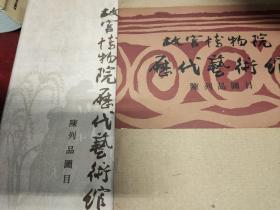 故宫博物院歷代藝術館
陳列品圖目
故宫博物院
歷代藝術館
陳列品圖目